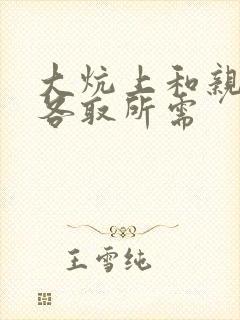 大炕上和亲
各取所需
王雪纯